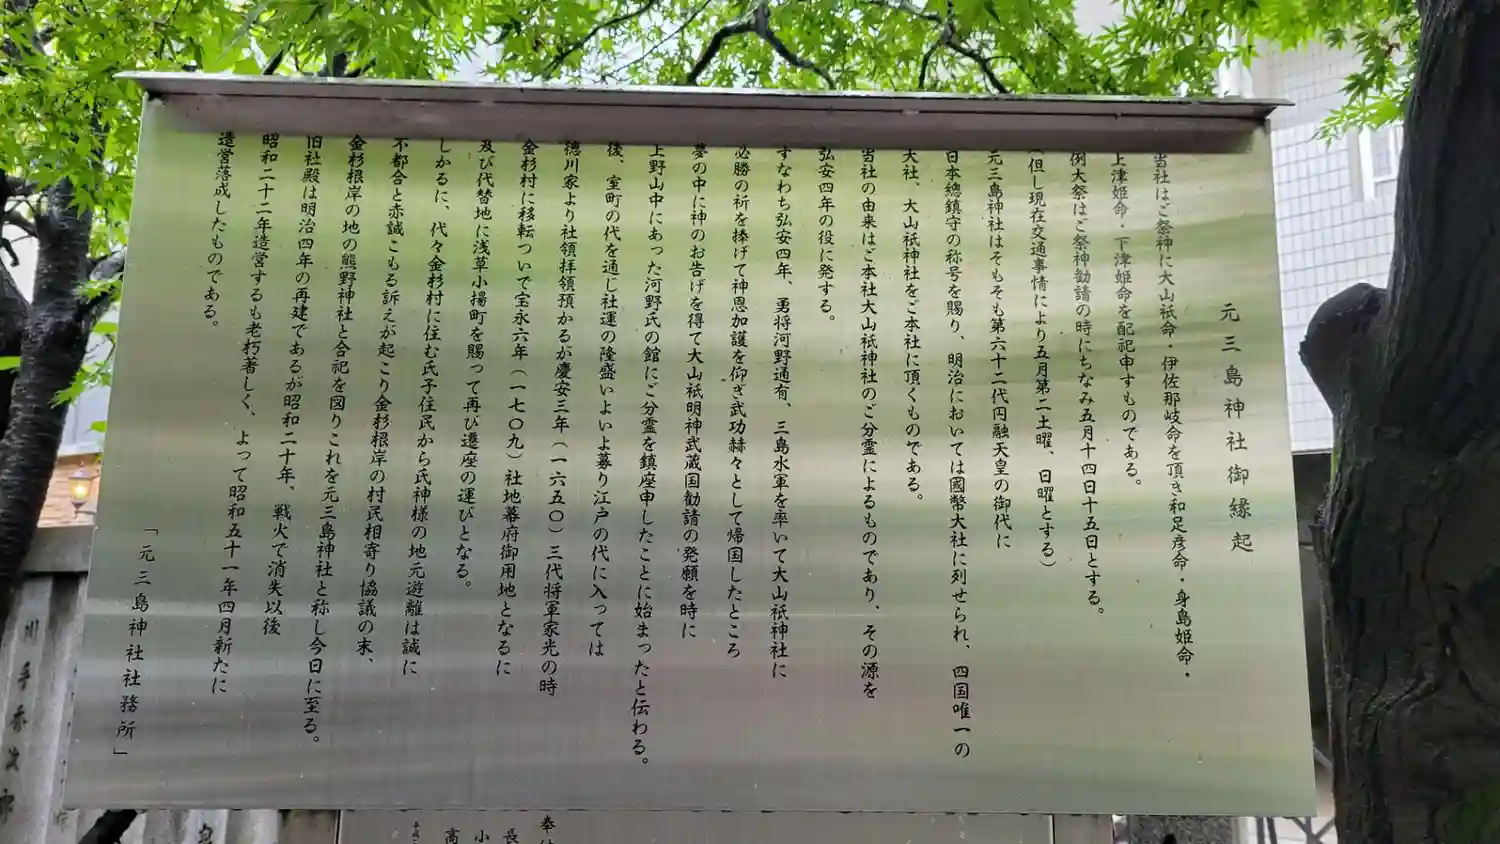 元三島神社御縁起
当社はご祭神に大山祇命・伊佐那岐命を頂き和足彦命・身島姫命・
上津姫命・下津姫命を配祀申すものである。
例大祭はご祭神勧請の時にちなみ五月十四日十五日とする。
（但し現在交通事情により五月第二土曜、日曜とする）
元三島神社はそもそも第六十二代円融天皇の御代に
日本總鎮守の称号を賜り、明治においては國幣大社に列せられ、四国唯一の
大社、大山祇神社をご本社に頂くものである。
当社の由来はご本社大山祇神社のご分霊によるものであり、その源を
弘安四年の役に発する。
すなわち弘安四年、勇将河野通有、三島水軍を率いて大山祇神社に
必勝の祈を捧げて神恩加護を仰ぎ武功赫々として帰国したところ
夢の中に神のお告げを得て大山祇明神武蔵国勧請の発願を時に
上野山中にあった河野氏の館にご分霊を鎮座申したことに始まったと伝わる。
後、室町の代を通じ社運の隆盛いよいよ募り江戸の代に入っては
徳川家より社領拝領預かるが慶安三年（一六五〇）三代将軍家光の時
金杉村に移転ついで宝永六年（一七〇九）社地幕府御用地となるに
及び代替地に浅草小揚町を賜って再び遷座の運びとなる。
しかるに、代々金杉村に住む氏子住民から氏神様の地元遊離は誠に
不都合と赤誠こもる訴えが起こり金杉根岸の村民相寄り協議の末、
金杉根岸の地の熊野神社と合祀を図りこれを元三島神社と称し今日に至る。
旧社殿は明治四年の再建であるが昭和二十年、戦火で消失以後
昭和二十二年造営するも老朽著しく、よって昭和五十一年四月新たに
造営落成したものである。
「元三島神社社務所」
奉
長
小
高
川手